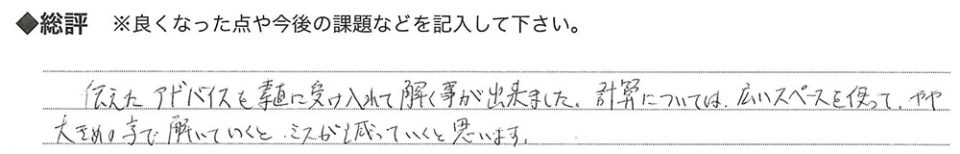 ◆総評 ※良くなった点や今後の課題などを記入して下さい。
伝えたアドバイスを素直に受け入れて解く事が出来ました。計算については、広いスペースを使って、やや
大きめの字で解いていくと、ミスが減っていくと思います。